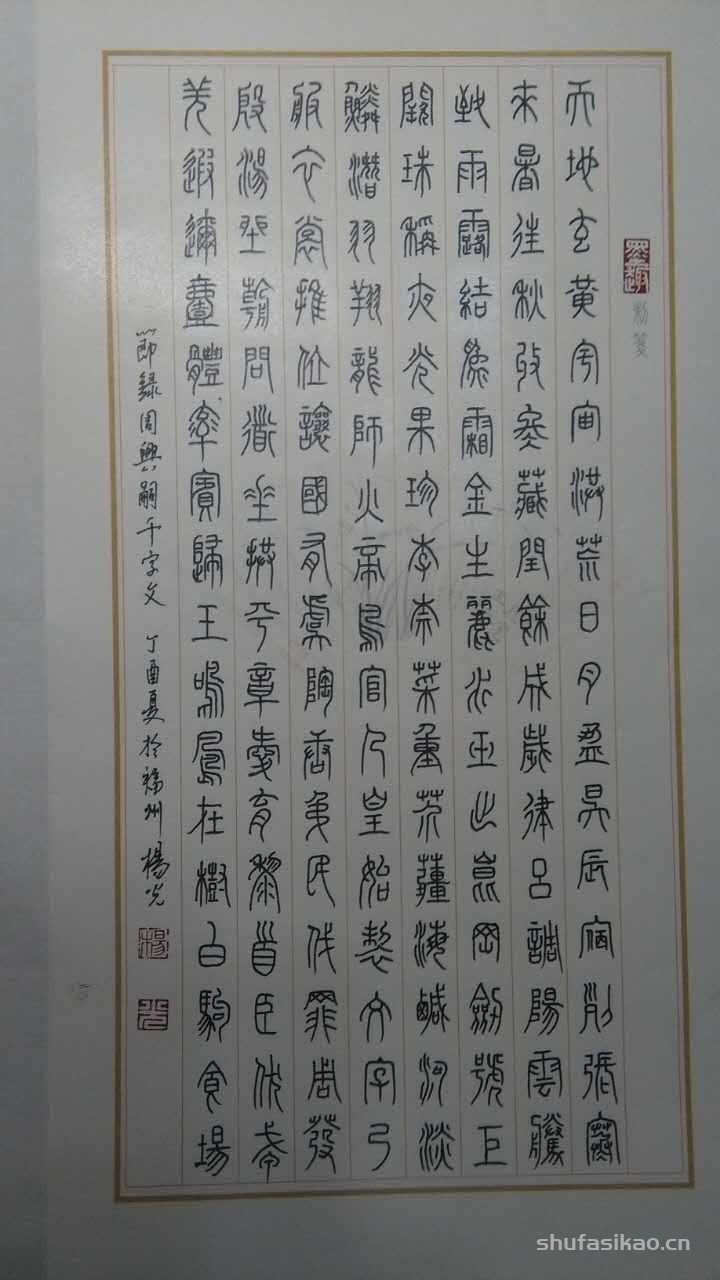 天地玄黃宇宙洪荒日月盈昃辰宿列張寒
來暑往秋收冬藏閏餘成歲律呂調陽雲騰
致雨露結為霜金生麗水玉出崑岡劍號巨
闕珠稱夜光果珍李柰菜重芥薑海鹹河淡
鱗潛羽翔龍師火帝鳥官人皇始製文字乃
服衣裳推位讓國有虞陶唐弔民伐罪周發
殷湯坐朝問道垂拱平章愛育黎首臣伏戎
羌遐邇壹體率賓歸王鳴鳳在樹白駒食場
節錄周興嗣千字文 丁酉夏於福州 楊光
楊
光
shufasikao.cn